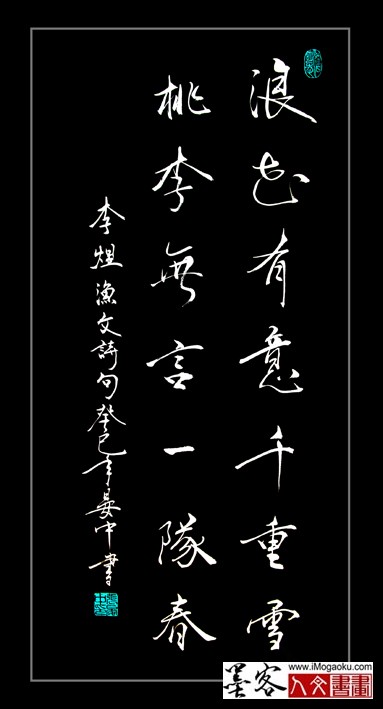 浪花有意千重雪
桃李無言一隊春
李煜漁父詩句癸巳年晏中書
墨客
www.iMogaoku.com
人文書畫